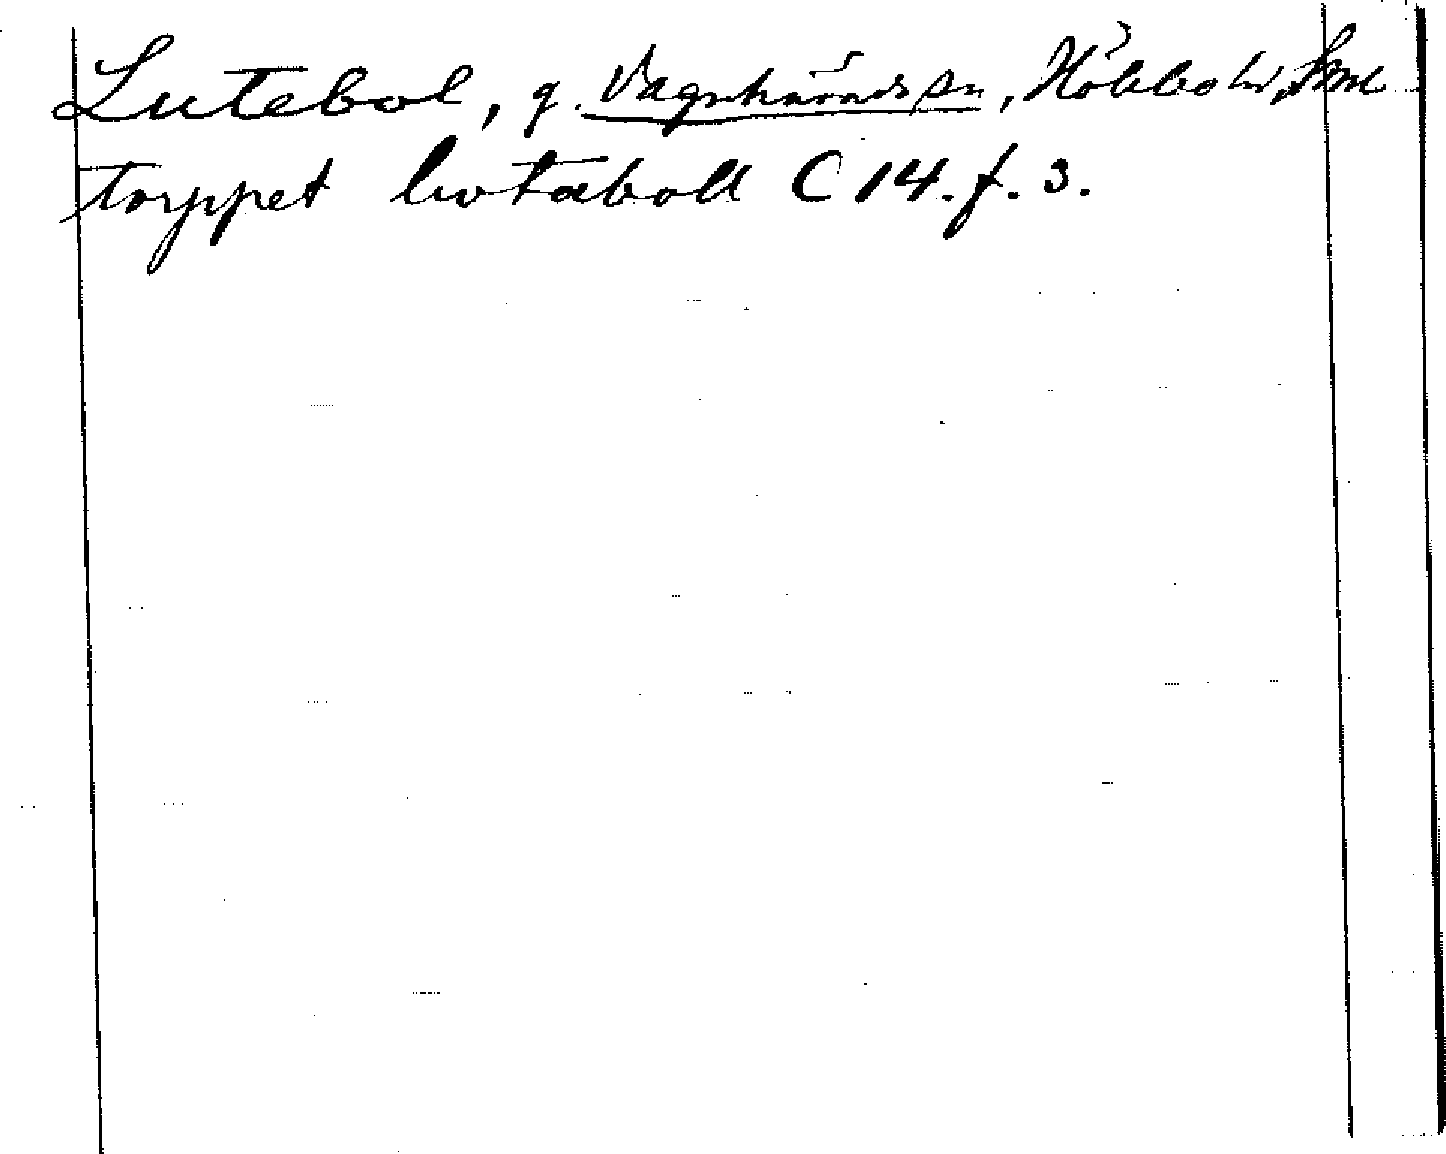 Lutebol, g. Vagnhärads sn, Hölebo hd, Sml
torppet lwtaboll C 14. f. 3.